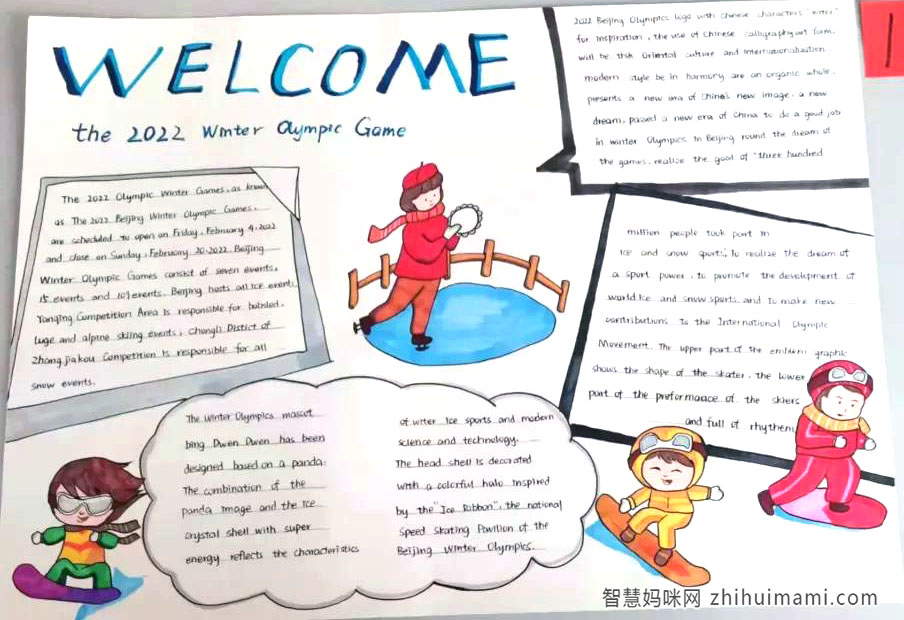 WELCOME
the 2022 Winter Olympic Game
The 2022 Olympic Winter Games, as known
as The 2022 Beijing Winter Olympic Games.
are scheduled to open on Friday, February 4.2022
and close on Sunday, February 20.2022. Beijing
Winter Olympic Games consist of seven events,
15 events and 109 events. Beijing hosts all ice events,
Yanqing Competition Area is responsible for bobsled,
luge and alpine skiing events, Chongli Distict of
Zhangjiakou Competition is responsible for all
snow events.
2022 Beijing Olympics logo with Chinese characters "winter"
for inspiration, the use of Chinese calligraphy art form.
will be thik Oriental culture and internationalization
modern style be in harmony are an organic whole.
presents a new era of China's new image, a new
dream, passed a new era of China to do a good job
in winter Olympics in Beijing round the dream of
the games, realize the goal of "three hundred
million people took part in
ice and snow sports", To realize the dream of
a sport power, to promote the development of
world ice and snow sports, and to make new
contributions to the International Olympic
Movement. The upper part of the emblem graphic
shows the shape of the skater, the lower
part of the preformance of the skiers
and full of rhythem
The Winter Olympics mascot
bing Dwen Dwen has been
designed based on a panda.
The combination of the
panda image and the ice
crystal shell with super
energy reflects the characteristics
of witer ice sports and modern
science and technology.
The head shell is decorated
with a colorful halo inspired
by the "Ice Ribbon", the national
Speed Skating Pavilion of the
Beijing Winter Olympics.
智慧妈咪网 zhihuimami.com